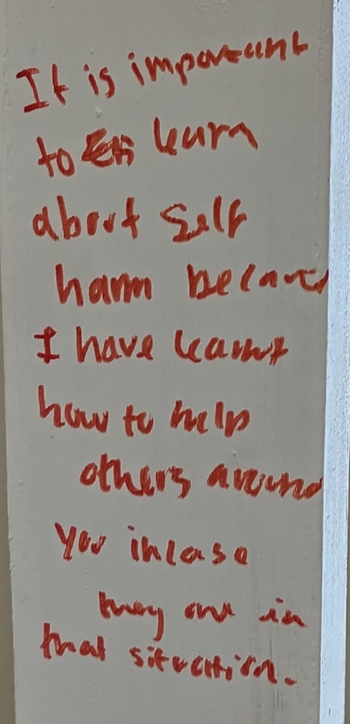 It is important
to learn
about self
harm because
I have learnt
how to help
others around
you incase
they are in
that situation.